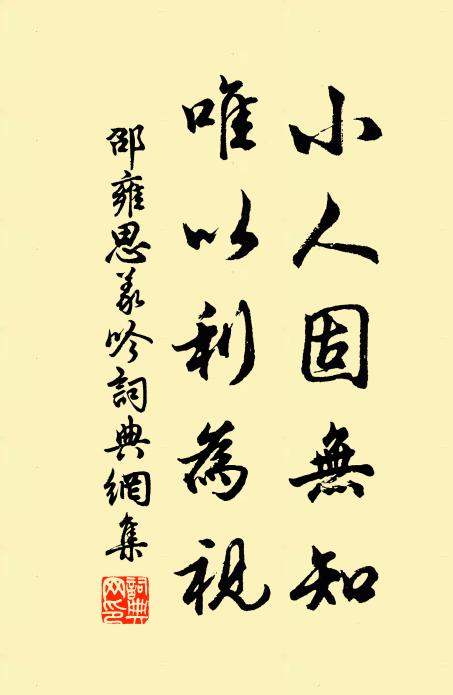 小人固無知
唯以利為視
邵雍思義吟詞典網集
詞典網印